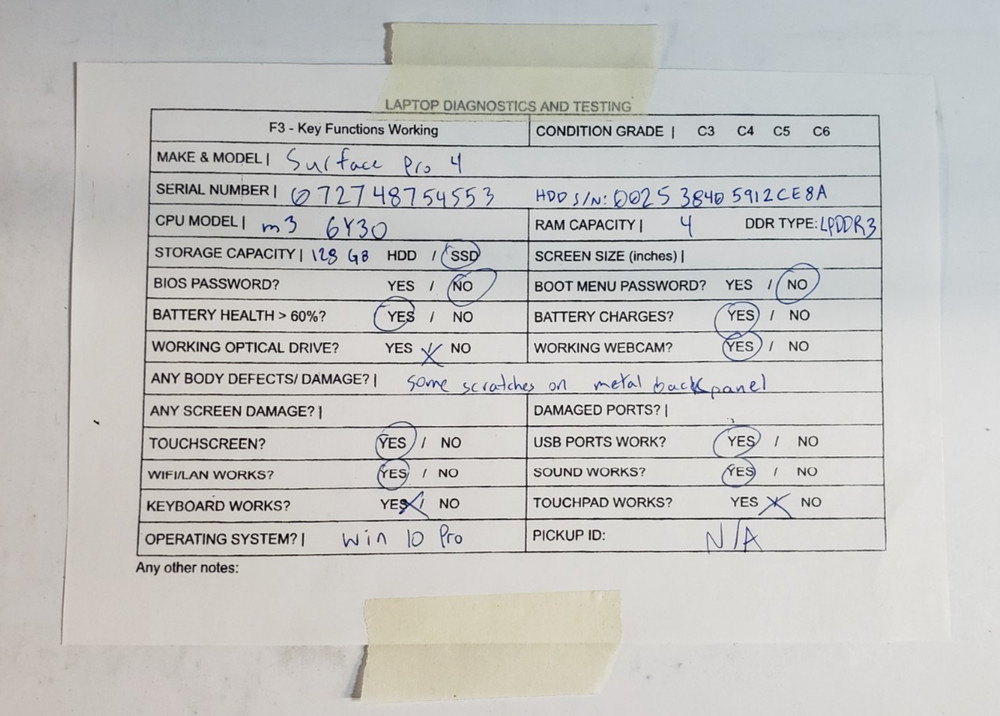 LAPTOP DIAGNOSTICS AND TESTING
F3 - Key Functions Working CONDITION GRADE | C3 C4 C5 C6
MAKE & MODEL | Surface Pro 4
SERIAL NUMBER | 072748754553 HDD S/N: 0025 3840 5912CE8A
CPU MODEL | m3 6Y30 RAM CAPACITY | 4 DDR TYPE: LPDDR3
STORAGE CAPACITY | 128 GB HDD / SSD SCREEN SIZE (inches) |
BIOS PASSWORD? YES / NO BOOT MENU PASSWORD? YES / NO
BATTERY HEALTH > 60%? YES / NO BATTERY CHARGES? YES / NO
WORKING OPTICAL DRIVE? YES / NO WORKING WEBCAM? YES / NO
ANY BODY DEFECTS/ DAMAGE? | some scratches on metal back panel
ANY SCREEN DAMAGE? | DAMAGED PORTS? |
TOUCHSCREEN? YES / NO USB PORTS WORK? YES / NO
WIFI/LAN WORKS? YES / NO SOUND WORKS? YES / NO
KEYBOARD WORKS? YES / NO TOUCHPAD WORKS? YES / NO
OPERATING SYSTEM? | Win 10 Pro PICKUP ID: N/A
Any other notes: